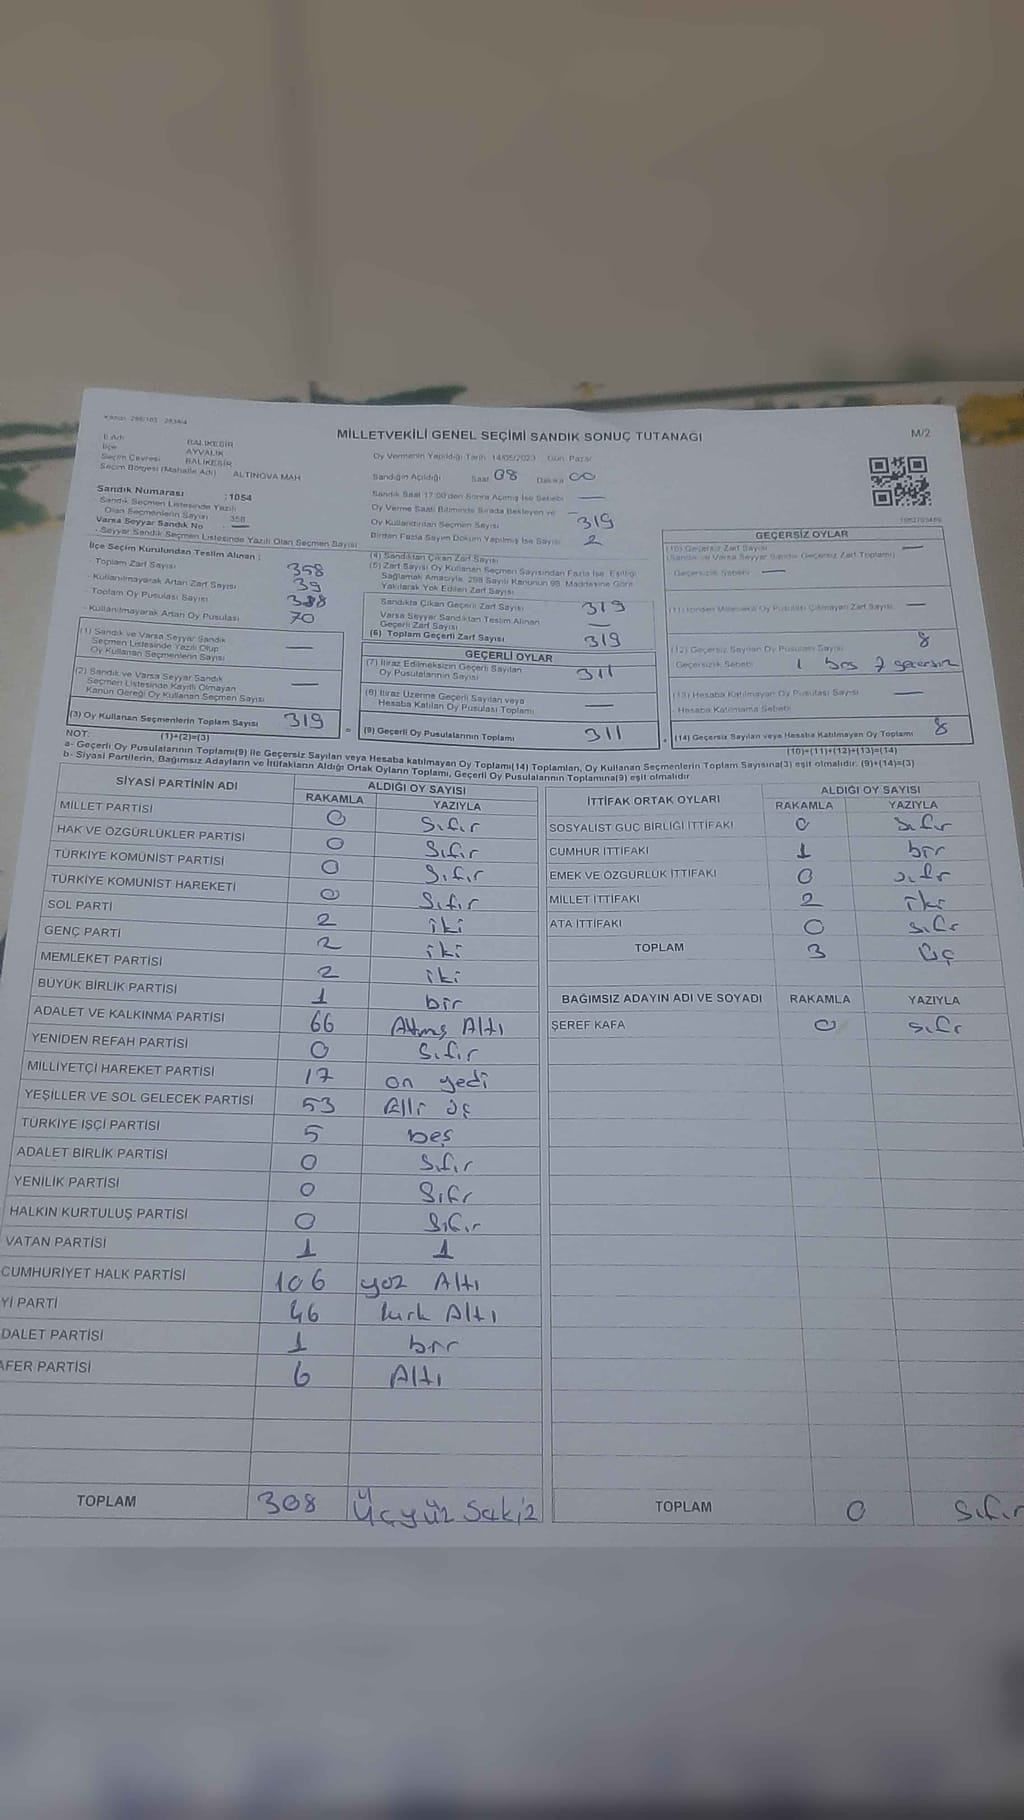 M/2
MİLLETVEKİLİ GENEL SEÇİMİ SANDIK SONUÇ TUTANAĞI
İl Adı BALIKESİR
İlçe AYVALIK
Seçim Çevresi BALIKESİR
Seçim Bölgesi (Mahalle Adı) ALTINOVA MAH
Sandık Numarası :1054
Sandık Seçmen Listesinde Yazılı
Olan Seçmenlerin Sayısı 358
Varsa Seyyar Sandık No —
- Seyyar Sandık Seçmen Listesinde Yazılı Olan Seçmen Sayısı
Oy Vermenin Yapıldığı Tarih 14/05/2023 Gün Pazar
Sandığın Açıldığı Saat 08 Dakika 00
Sandık Saat 17:00'den Sonra Açılmış İse Sebebi —
Oy Verme Saati Bitiminde Sırada Bekleyen ve —
Oy Kullandırılan Seçmen Sayısı 319
Birden Fazla Sayım Döküm Yapılmış İse Sayısı 2
İlçe Seçim Kurulundan Teslim Alınan :
- Toplam Zarf Sayısı 358
- Kullanılmayarak Artan Zarf Sayısı 39
- Toplam Oy Pusulası Sayısı 388
- Kullanılmayarak Artan Oy Pusulası 70
(1) Sandık ve Varsa Seyyar Sandık
Seçmen Listesinde Yazılı Olup
Oy Kullanan Seçmenlerin Sayısı —
(2) Sandık ve Varsa Seyyar Sandık
Seçmen Listesinde Kayıtlı Olmayan
Kanun Gereği Oy Kullanan Seçmen Sayısı —
(3) Oy Kullanan Seçmenlerin Toplam Sayısı 319
(4) Sandıktan Çıkan Zarf Sayısı
(5) Zarf Sayısı Oy Kullanan Seçmen Sayısından Fazla İse, Eşitliği
Sağlamak Amacıyla, 298 Sayılı Kanunun 98. Maddesine Göre
Yakılarak Yok Edilen Zarf Sayısı
Sandıkta Çıkan Geçerli Zarf Sayısı 319
Varsa Seyyar Sandıktan Teslim Alınan
Geçerli Zarf Sayısı —
(6) Toplam Geçerli Zarf Sayısı 319
GEÇERLİ OYLAR
(7) İtiraz Edilmeksizin Geçerli Sayılan
Oy Pusulalarının Sayısı 311
(8) İtiraz Üzerine Geçerli Sayılan veya
Hesaba Katılan Oy Pusulası Toplamı —
(9) Geçerli Oy Pusulalarının Toplamı 311
GEÇERSİZ OYLAR
(10) Geçersiz Zarf Sayısı —
(Sandık ve Varsa Seyyar Sandık Geçersiz Zarf Toplamı)
Geçersizlik Sebebi —
(11) İçinden Milletvekili Oy Pusulası Çıkmayan Zarf Sayısı —
(12) Geçersiz Sayılan Oy Pusulası Sayısı 8
Geçersizlik Sebebi 1 boş 7 geçersiz
(13) Hesaba Katılmayan Oy Pusulası Sayısı —
- Hesaba Katılmama Sebebi
(14) Geçersiz Sayılan veya Hesaba Katılmayan Oy Toplamı 8
NOT: (1)+(2)=(3) (10)+(11)+(12)+(13)=(14)
a- Geçerli Oy Pusulalarının Toplamı(9) ile Geçersiz Sayılan veya Hesaba katılmayan Oy Toplamı(14) Toplamları, Oy Kullanan Seçmenlerin Toplam Sayısına(3) eşit olmalıdır. (9)+(14)=(3)
b- Siyasi Partilerin, Bağımsız Adayların ve İttifakların Aldığı Ortak Oyların Toplamı, Geçerli Oy Pusulalarının Toplamına(9) eşit olmalıdır
SİYASİ PARTİNİN ADI ALDIĞI OY SAYISI
RAKAMLA YAZIYLA
MİLLET PARTİSİ 0 Sıfır
HAK VE ÖZGÜRLÜKLER PARTİSİ 0 Sıfır
TÜRKİYE KOMÜNİST PARTİSİ 0 Sıfır
TÜRKİYE KOMÜNİST HAREKETİ 0 Sıfır
SOL PARTİ 2 iki
GENÇ PARTİ 2 iki
MEMLEKET PARTİSİ 2 iki
BÜYÜK BİRLİK PARTİSİ 1 bir
ADALET VE KALKINMA PARTİSİ 66 Atmış Altı
YENİDEN REFAH PARTİSİ 0 Sıfır
MİLLİYETÇİ HAREKET PARTİSİ 17 on yedi
YEŞİLLER VE SOL GELECEK PARTİSİ 53 Elli üç
TÜRKİYE İŞÇİ PARTİSİ 5 beş
ADALET BİRLİK PARTİSİ 0 Sıfır
YENİLİK PARTİSİ 0 Sıfır
HALKIN KURTULUŞ PARTİSİ 0 Sıfır
VATAN PARTİSİ 1 1
CUMHURİYET HALK PARTİSİ 106 yüz Altı
Yİ PARTİ 46 kırk Altı
DALET PARTİSİ 1 bir
AFER PARTİSİ 6 Altı
TOPLAM 308 Üçyüz Sekiz
İTTİFAK ORTAK OYLARI ALDIĞI OY SAYISI
RAKAMLA YAZIYLA
SOSYALİST GÜÇ BİRLİĞİ İTTİFAKI 0 Sıfır
CUMHUR İTTİFAKI 1 bir
EMEK VE ÖZGÜRLÜK İTTİFAKI 0 sıfır
MİLLET İTTİFAKI 2 iki
ATA İTTİFAKI 0 sıfır
TOPLAM 3 üç
BAĞIMSIZ ADAYIN ADI VE SOYADI RAKAMLA YAZIYLA
ŞEREF KAFA 0 sıfır
TOPLAM 0 Sıfır